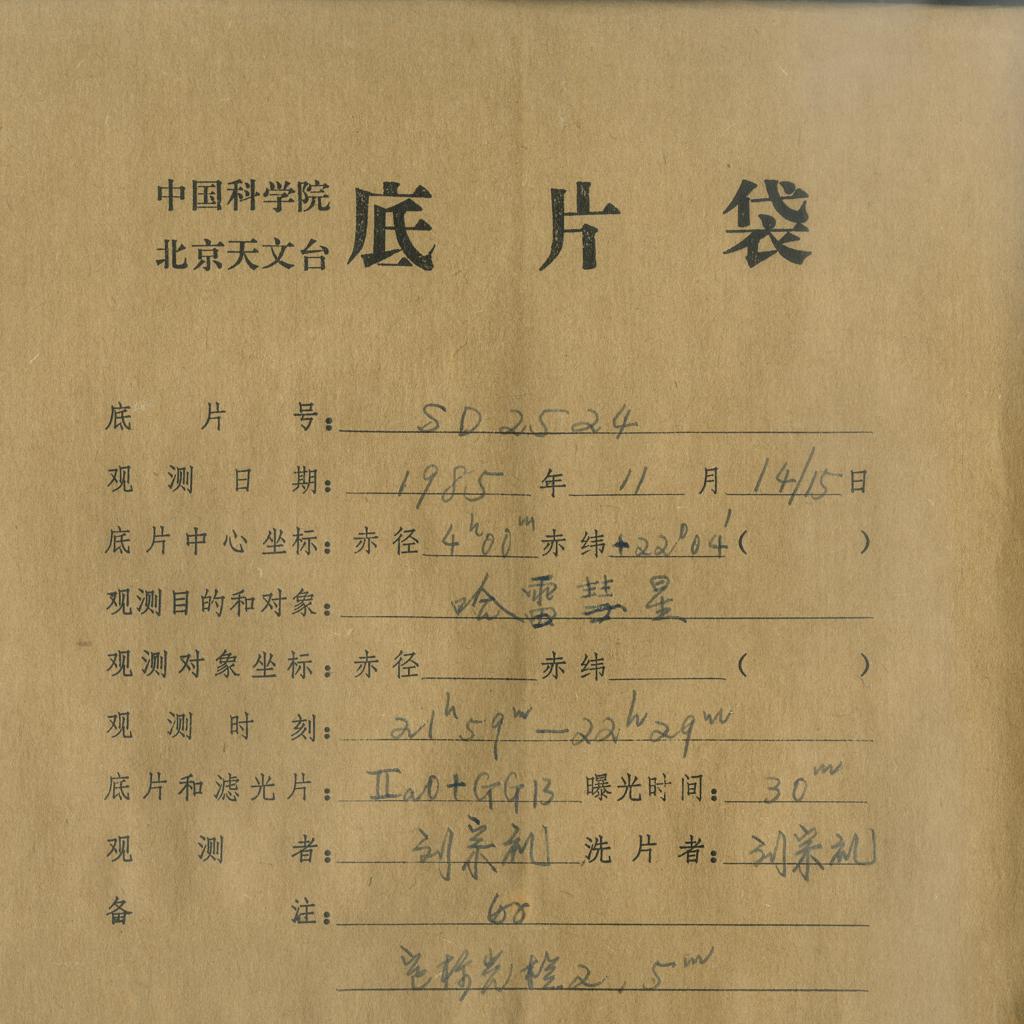 中国科学院
北京天文台 底片袋
底片号：SD2524
观测日期：1985年11月14/15日
底片中心坐标：赤径4ʰ00ᵐ赤纬+22°04′( )
观测目的和对象：哈雷彗星
观测对象坐标：赤径 赤纬 ( )
观测时刻：21ʰ59ᵐ—22ʰ29ᵐ
底片和滤光片：IIaO+GG13 曝光时间：30ᵐ
观测者：刘宗礼 洗片者：刘宗礼
备注：
2, 5ᵐ